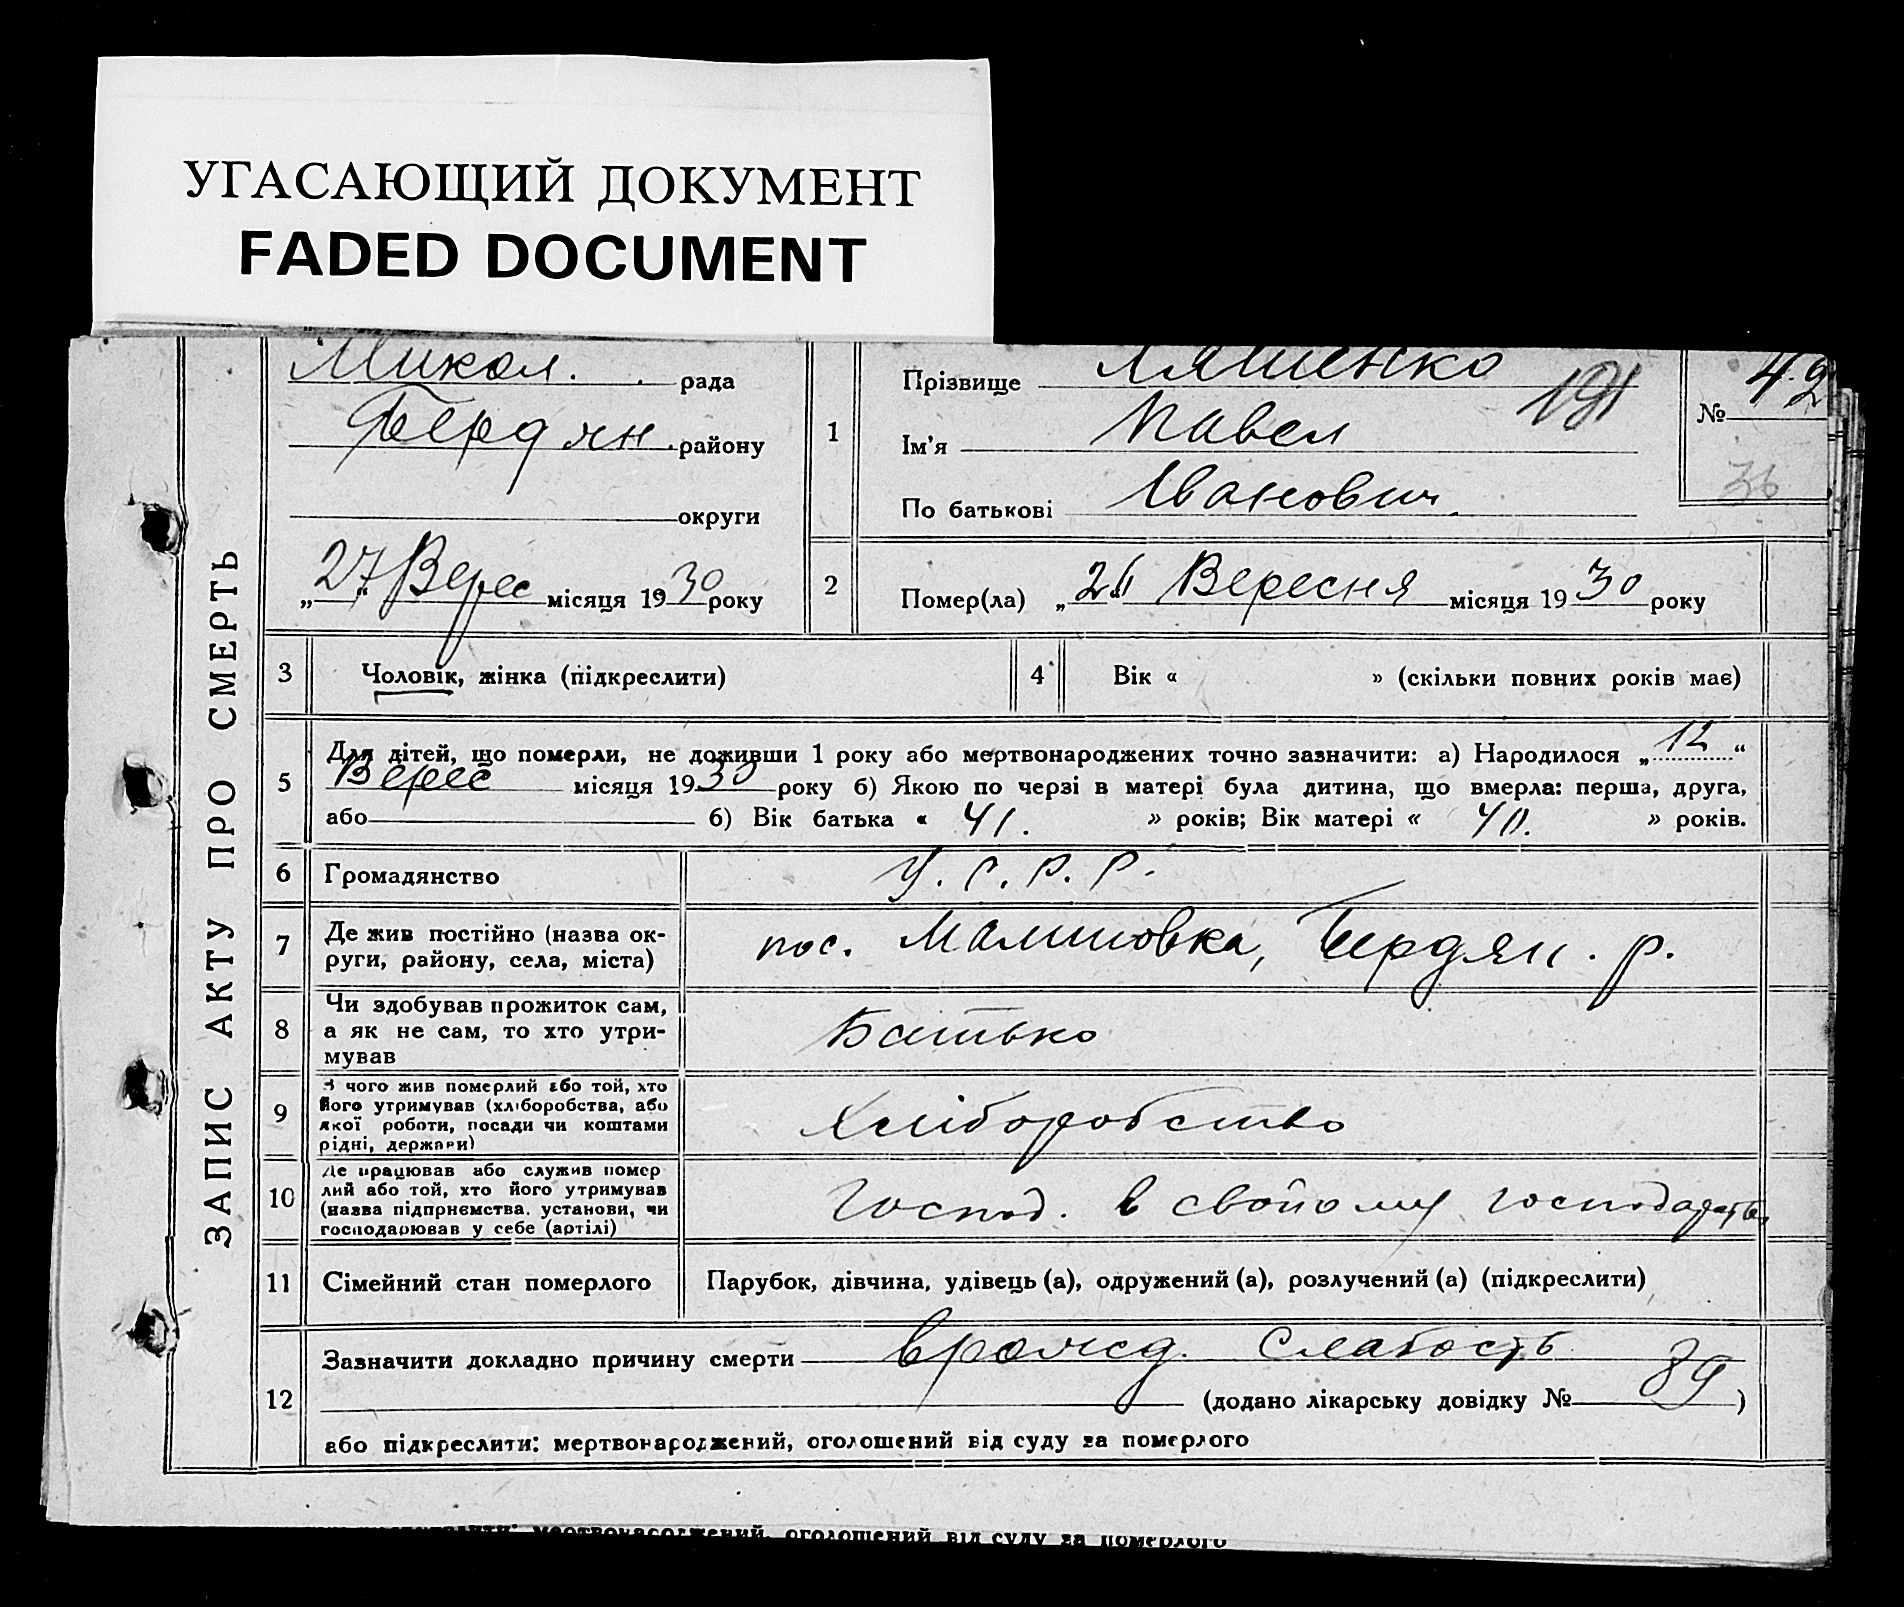 УГАСАЮЩИЙ ДОКУМЕНТ
FADED DOCUMENT
ЗАПИС АКТУ ПРО СМЕРТЬ
Микол. рада
Бердян. району
округи
„27“ Верес місяця 1930 року
1
Прізвище Ляшенко
191
Ім'я Павел
По батькові Іванович
№ 42
36
2
Помер(ла) „26“ Вересня місяця 1930 року
3 Чоловік, жінка (підкреслити)
4 Вік « » (скільки повних років має)
5
Для дітей, що померли, не доживши 1 року або мертвонароджених точно зазначити: а) Народилося „12“
Верес місяця 1930 року б) Якою по черзі в матері була дитина, що вмерла: перша, друга,
або б) Вік батька « 41. » років; Вік матері « 40. » років.
6 Громадянство У.С.Р.Р.
7 Де жив постійно (назва ок-
руги, району, села, міста)
пос. Малиновка, Бердян. р.
8 Чи здобував прожиток сам,
а як не сам, то хто утри-
мував
Батько
9 З чого жив померлий або той, хто
його утримував (хліборобства, або
якої роботи, посади чи коштами
рідні, держави)
Хліборобство
10 Де працював або служив помер
лий або той, хто його утримував
(назва підпрнємства, установи, чи
господарював у себе (артілі)
Господ. в свойому господарстві
11 Сімейний стан померлого
Парубок, дівчина, удівець (а), одружений (а), розлучений (а) (підкреслити)
12
Зазначити докладно причину смерти врожд. слабость
(додано лікарську довідку № 89)
або підкреслити: мертвонароджений, оголошений від суду за померлого
мертвонароджений, оголошений від суду за померлого